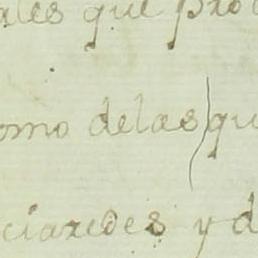 ales que pro
omo delas qu
ciaredes y d